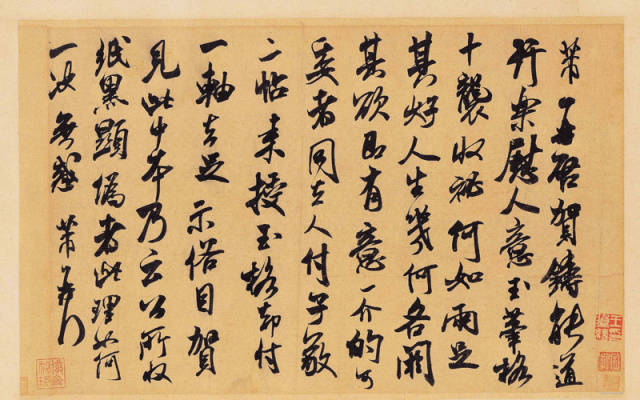 芾再啓賀鑄能道
行樂慰人意玉筆格
十襲收祕何如兩足
其好人生幾何各闊
其欲即有意一介的可
委者同去人付子敬
二帖來授玉格却付
一軸去足示俗目賀
見此中本乃云公所收
紙黑顯偽者此理如何
一决無惑 芾再